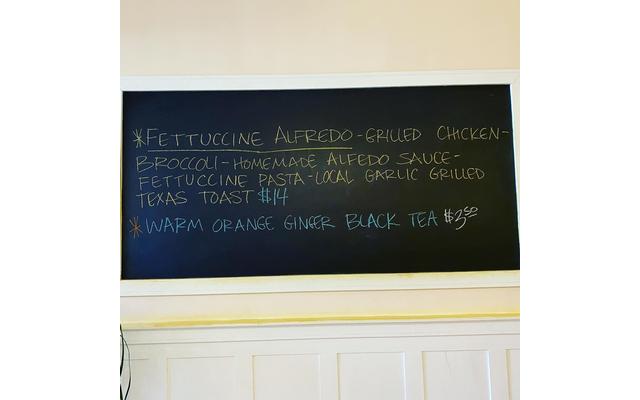 *FETTUCCINE ALFREDO-GRILLED CHICKEN-
BROCCOLI-HOMEMADE ALFEDO SAUCE-
FETTUCCINE PASTA-LOCAL GARLIC GRILLED
TEXAS TOAST $14
*WARM ORANGE GINGER BLACK TEA $3.50